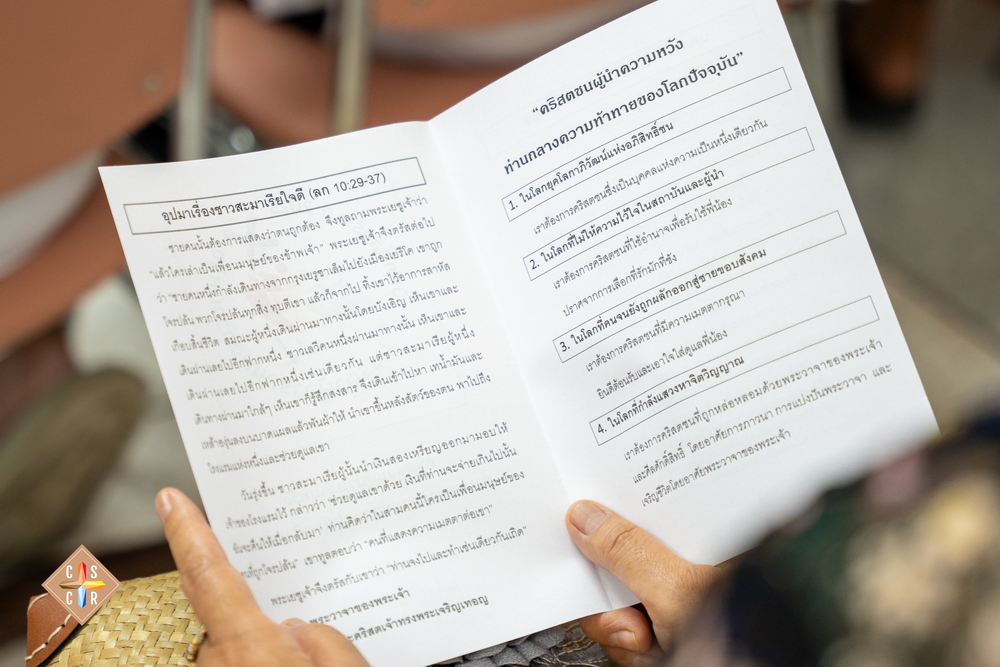 อุปมาเรื่องชาวสะมาเรียใจดี (ลก 10:29-37)
ชายคนนั้นต้องการแสดงว่าตนถูกต้อง จึงทูลถามพระเยซูเจ้าว่า
"แล้วใครเล่าเป็นเพื่อนมนุษย์ของข้าพเจ้า" พระเยซูเจ้าจึงตรัสต่อไป
ว่า "ชายคนหนึ่งกำลังเดินทางจากกรุงเยรูซาเล็มไปยังเมืองเยรีโค เขาถูก
โจรปล้น พวกโจรปล้นทุกสิ่ง ทุบตีเขา แล้วก็จากไป ทิ้งเขาไว้อาการสาหัส
เกือบสิ้นชีวิต สมณะผู้หนึ่งเดินผ่านมาทางนั้นโดยบังเอิญ เห็นเขาและ
เดินผ่านเลยไปอีกฟากหนึ่ง ชาวเลวีคนหนึ่งผ่านมาทางนั้น เห็นเขาและ
เดินผ่านเลยไปอีกฟากหนึ่งเช่นเดียวกัน แต่ชาวสะมาเรียผู้หนึ่ง
เดินทางผ่านมาใกล้ๆ เห็นเขาก็รู้สึกสงสาร จึงเดินเข้าไปหา เทน้ำมันและ
เหล้าองุ่นลงบนบาดแผลแล้วพันผ้าให้ นำเขาขึ้นหลังสัตว์ของตน พาไปถึง
โรงแรมแห่งหนึ่งและช่วยดูแลเขา
วันรุ่งขึ้น ชาวสะมาเรียผู้นั้นนำเงินสองเหรียญออกมามอบให้
เจ้าของโรงแรมไว้ กล่าวว่า 'ช่วยดูแลเขาด้วย เงินที่ท่านจะจ่ายเกินไปนั้น
ฉันจะคืนให้เมื่อกลับมา' ท่านคิดว่าในสามคนนี้ใครเป็นเพื่อนมนุษย์ของ
คนที่ถูกโจรปล้น" เขาทูลตอบว่า "คนที่แสดงความเมตตาต่อเขา"
พระเยซูเจ้าจึงตรัสกับเขาว่า "ท่านจงไปและทำเช่นเดียวกันเถิด"
พระวาจาของพระเจ้า
พระคริสตเจ้าทรงพระเจริญเทอญ
"คริสตชนผู้นำความหวัง
ท่ามกลางความท้าทายของโลกปัจจุบัน"
1. ในโลกยุคโลกาภิวัฒน์แห่งอภิสิทธิ์ชน
เราต้องการคริสตชนซึ่งเป็นบุคคลแห่งความเป็นหนึ่งเดียวกัน
2. ในโลกที่ไม่ให้ความไว้ใจในสถาบันและผู้นำ
เราต้องการคริสตชนที่ใช้อำนาจเพื่อรับใช้พี่น้อง
ปราศจากการเลือกที่รักมักที่ชัง
3. ในโลกที่คนจนยังถูกผลักออกสู่ชายขอบสังคม
เราต้องการคริสตชนที่มีความเมตตากรุณา
ยินดีต้อนรับและเอาใจใส่ดูแลพี่น้อง
4. ในโลกที่กำลังแสวงหาจิตวิญญาณ
เราต้องการคริสตชนที่ถูกหล่อหลอมด้วยพระวาจาของพระเจ้า
และศีลศักดิ์สิทธิ์ โดยอาศัยการภาวนา การแบ่งปันพระวาจา และ
เจริญชีวิตโดยอาศัยพระวาจาของพระเจ้า
C S
C R